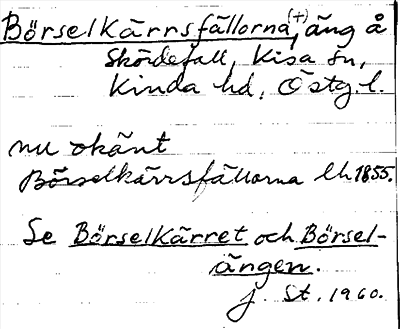 Börselkärrsfällorna(+), äng å
Skördefall, Kisa sn,
Kinda hd, Östg. l.
nu okänt
Börselkärrsfällorna lh 1855.
Se Börselkärret och Börsel-
ängen.
J. St. 1960.